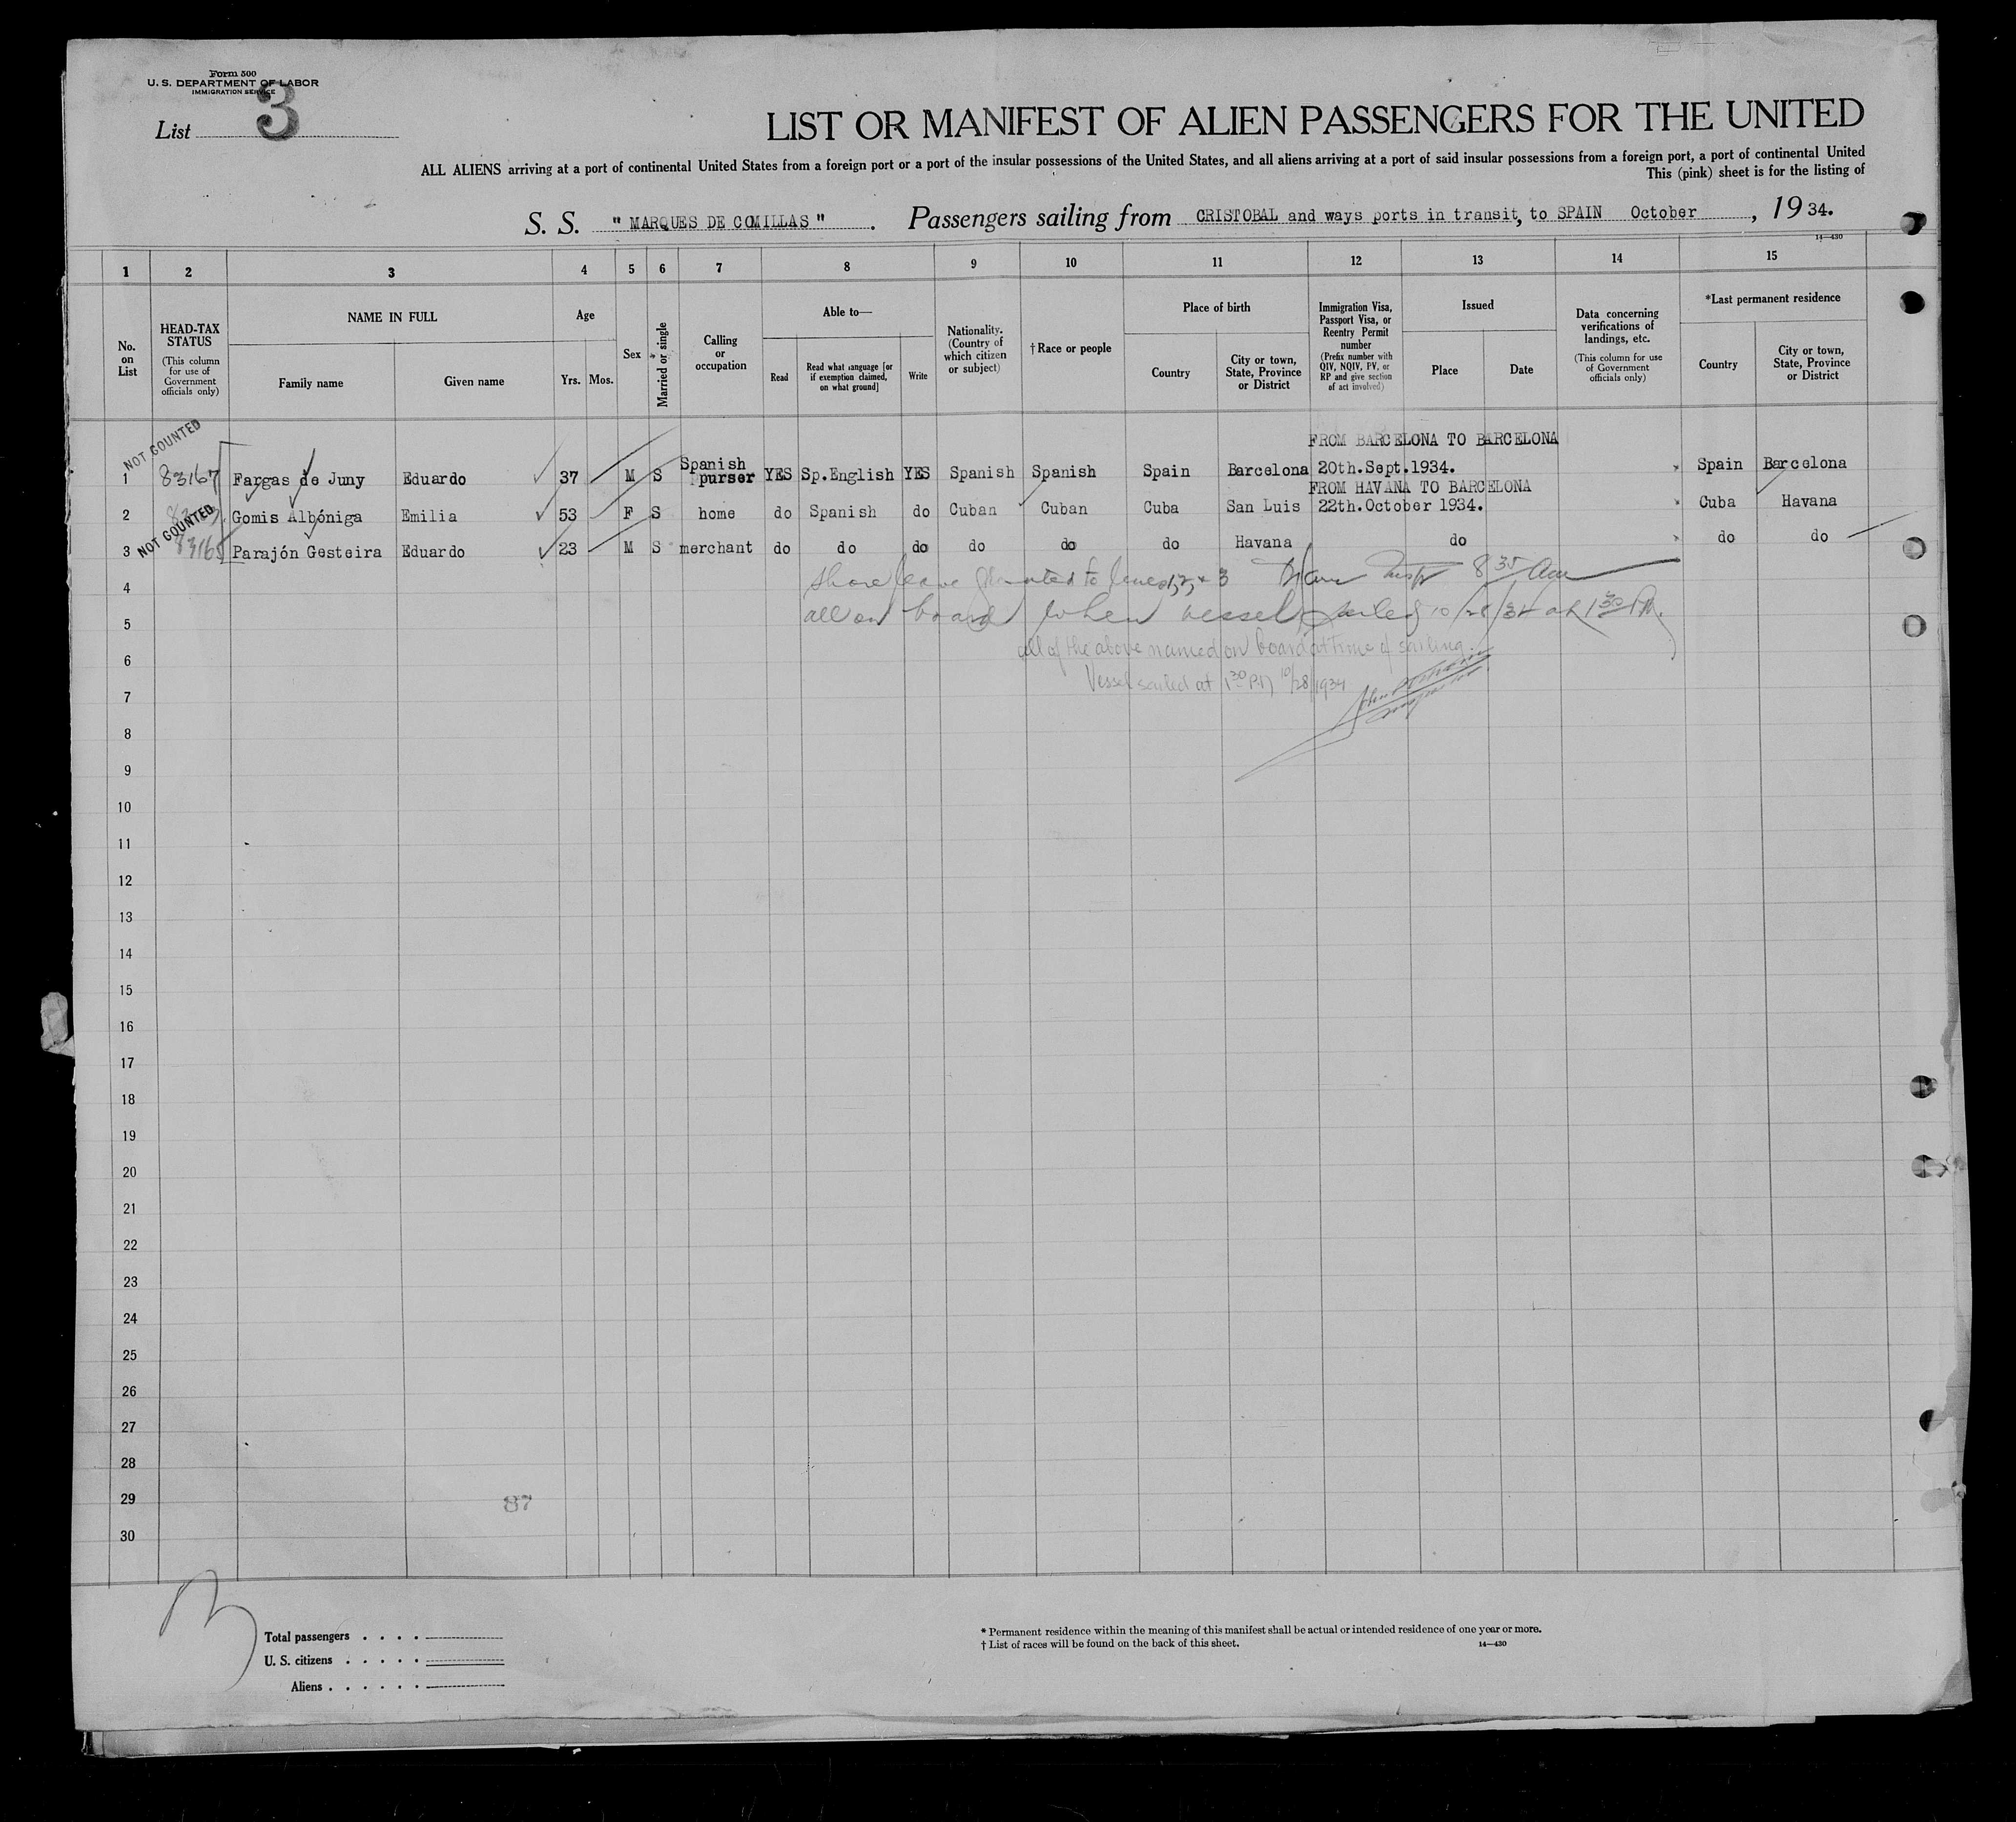 Form 500
U. S. DEPARTMENT OF LABOR
IMMIGRATION SERVICE
List 3
LIST OR MANIFEST OF ALIEN PASSENGERS FOR THE UNITED
ALL ALIENS arriving at a port of continental United States from a foreign port or a port of the insular possessions of the United States, and all aliens arriving at a port of said insular possessions from a foreign port, a port of continental United
This (pink) sheet is for the listing of
S. S. "MARQUES DE COMILLAS". Passengers sailing from CRISTOBAL and ways ports in transit, to SPAIN October, 1934.
14—430
1 2 3 4 5 6 7 8 9 10 11 12 13 14 15
No. on List
HEAD-TAX STATUS (This column for use of Government officials only)
NAME IN FULL
Family name
Given name
Age
Yrs. Mos.
Sex
Married or single
Calling or occupation
Able to—
Read
Read what language [or if exemption claimed, on what ground]
Write
Nationality. (Country of which citizen or subject)
† Race or people
Place of birth
Country
City or town, State, Province or District
Immigration Visa, Passport Visa, or Reentry Permit number (Prefix number with QIV, NQIV, PV, or RP and give section of act involved)
Issued
Place
Date
Data concerning verifications of landings, etc. (This column for use of Government officials only)
*Last permanent residence
Country
City or town, State, Province or District
NOT COUNTED
FROM BARCELONA TO BARCELONA
1 83167 Fargas de Juny Eduardo 37 M S Spanish purser YES Sp.English YES Spanish Spanish Spain Barcelona 20th.Sept.1934. Spain Barcelona
FROM HAVANA TO BARCELONA
2 Gomis Albóniga Emilia 53 F S home do Spanish do Cuban Cuban Cuba San Luis 22th.October 1934. Cuba Havana
NOT COUNTED
3 Parajón Gesteira Eduardo 23 M S merchant do do do do do do Havana do do do
4 Shore leave granted to lines 1, 2, + 3 8 35 am
5 all on board when vessel sailed 10/28/34 at 1 30 P.M.
6 all of the above named on board at time of sailing.
7 Vessel sailed at 1 30 P.M 10/28/1934
8
9
10
11
12
13
14
15
16
17
18
19
20
21
22
23
24
25
26
27
28
29 87
30
Total passengers . . . .
U. S. citizens . . . . .
Aliens . . . . . .
* Permanent residence within the meaning of this manifest shall be actual or intended residence of one year or more.
† List of races will be found on the back of this sheet. 14—430